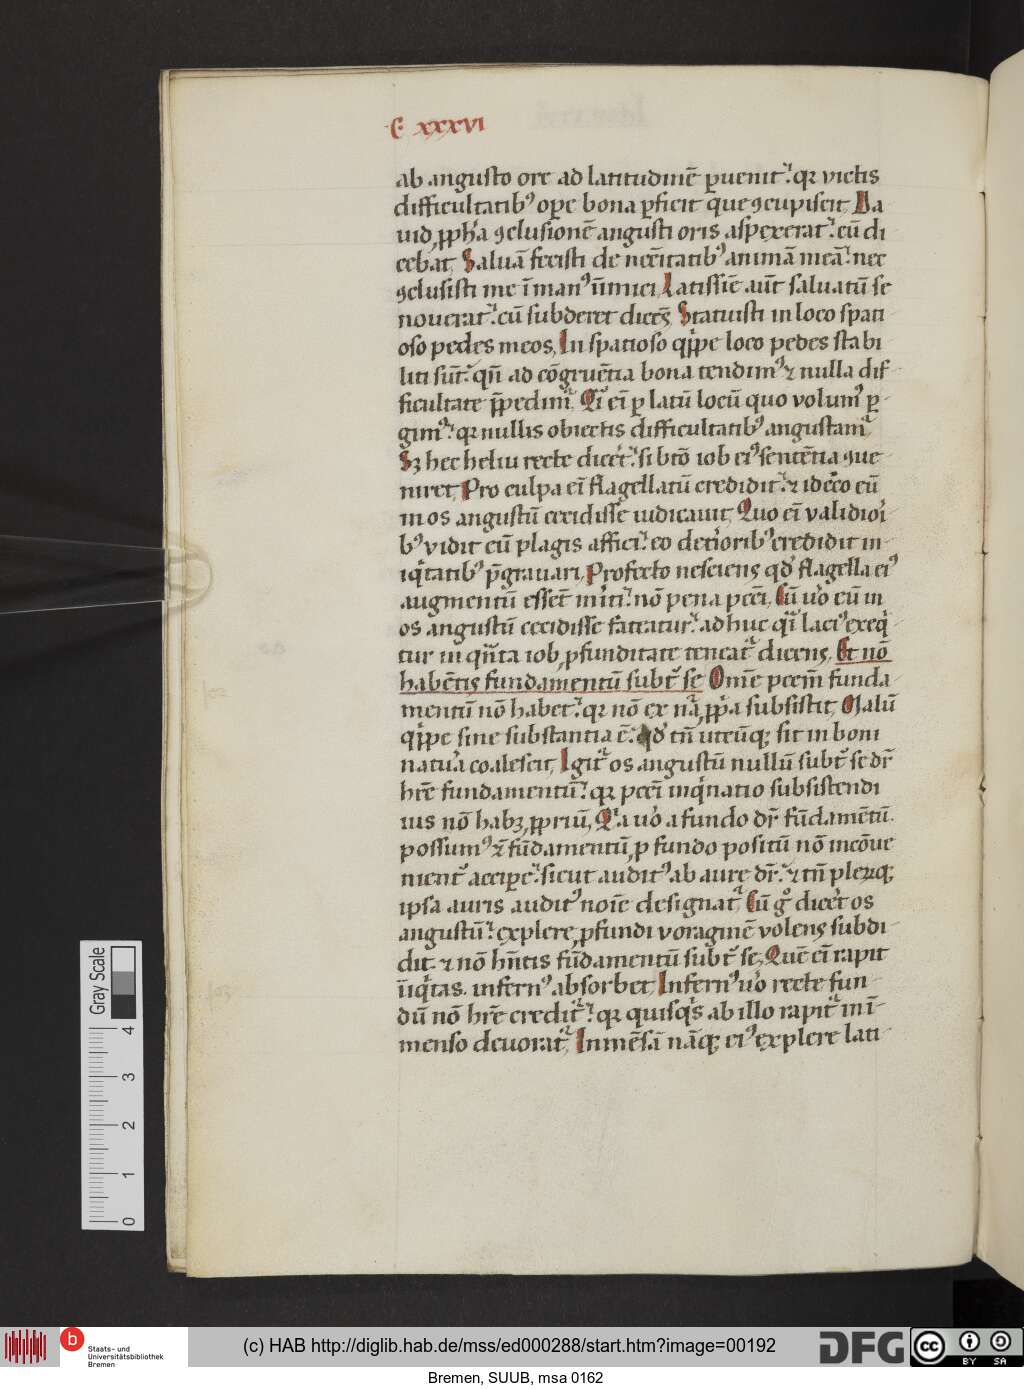 C xxxvi
ab angusto ore ad latitudinē ꝑuenit. qꝛ victis
difficultatibꝰ oꝑe bona ꝑficit que ꝯcupiscit. Da
uid ꝓpha ꝯclusionē angusti oris aspexerat. cū di
cebat. Saluā fecisti de nec̄itatibꝰ animā meā. nec
ꝯclusisti me ī manꝰ inimici. Latissīe aūt saluatū se
nouerat. cū subderet dicēs. Statuisti in loco spati
oso pedes meos. In spatioso qͥppe loco pedes stabi
liti sūt. qn̄ ad cōgruētia bona tendimꝰ ⁊ nulla dif
ficultate p̄pedimr. Qͥ ei ꝑ latū locū quo volumꝰ ꝑ
gimꝰ. qꝛ nullis obiectis difficultatibꝰ angustamr
Sꝫ hec heliu recte diceret. si btō iob eiꝰ sentētia ꝯue
niret. Pro culpa ei flagellatū credidit. ⁊ idcͦo eū
in os angustū cecidisse iudicauit. Quo ei validiori
bꝰ vidit eū plagis affici. eo deterioribꝰ credidit in
iqͥtatibꝰ p̄grauari. Profecto nesciens qd flagella eiꝰ
augmentū esset mͥti. nō pena pcc̄i. Cū uͦo eū in
os angustū cecidisse fateatur. adhuc qͥ lacꝰ exeqͥ
tur in qn̄ta iob ꝓfunditate teneatr dicens. Et nō
habētis fundamentū subtꝰ se Omē pccm̄ funda
mentū nō habet. qꝛ nō ex nā ꝓpͥa subsistit. Malū
qͥppe sine substantia ē. qd tn̄ utcūqꝫ sit in boni
natura coalescit. Igitr os angustū nullū subtꝰ se dr
hr̄e fundamentū. qꝛ pcc̄i inqͥnatio subsistendi
ius nō habꝫ ꝓpriū. Qͥa uͦo a fundo dr fūdamētū.
possumꝰ ⁊ fūdamentū ꝓ fundo positū nō incōue
nientꝰ acciꝑe. sicut auditꝰ ab aure dr. ⁊ tn̄ pleꝛqꝫ
ipsa auris auditꝰ noīe designatr. Cū gͦ diceret os
angustū. explere ꝓfundi voraginē volens subdi
dit. ⁊ nō hn̄tis fūdamentū subtꝰ se. Quē ei rapit
iniqͥtas. infernꝰ absorbet. Infernꝰ uͦo recte fun
dū nō hr̄e creditr. qꝛ quisqͥs ab illo rapitr in ī
menso deuoratr. Inmēsā nāqꝫ eiꝰ explere lati
Gray Scale
0 1 2 3 4
b Staats- und
Universitätsbibliothek
Bremen
(c) HAB http://diglib.hab.de/mss/ed000288/start.htm?image=00192
DFG
cc BY SA
Bremen, SUUB, msa 0162